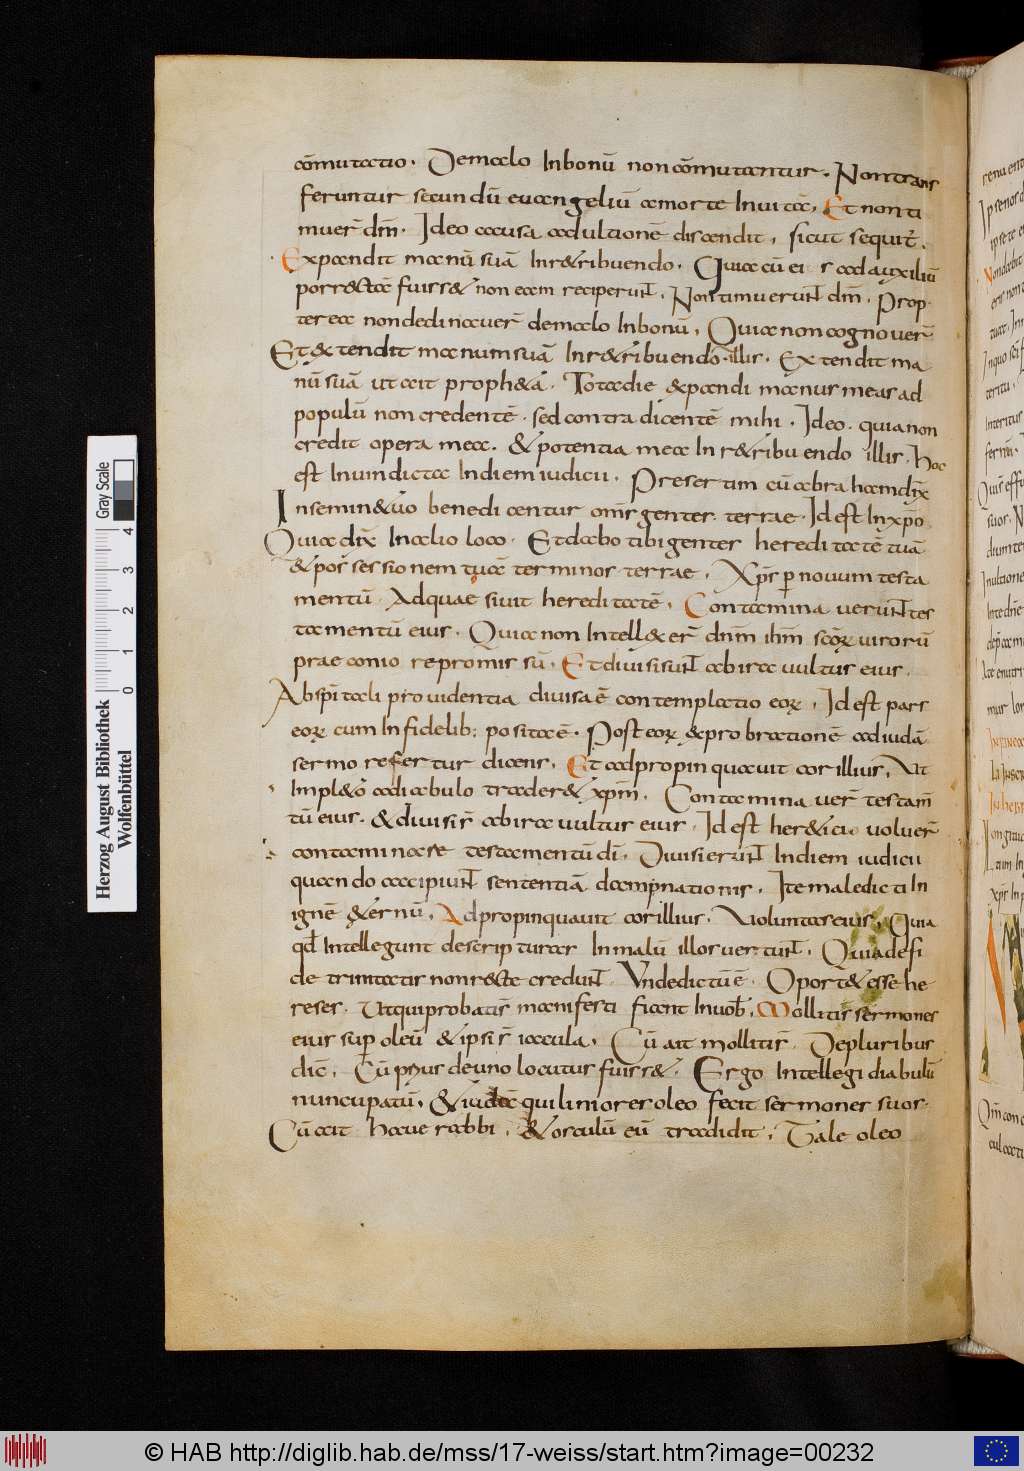 cōmutatio. Demalo Inbonū noncōmutantur. Nontrans
feruntur secundū euangeliū amorte Inuitā. Et nonti
muer̄ dm̄. Ideo causa adultionē discendit, sicut sequit̄.
Expandit manū suā Inretribuendo. Quia cū eis ad auxiliū
porrecta fuisset non eam receperunt. Non timuerunt dm̄. Prop
terea nondedinauer̄ demalo Inbonū, Quia non cognouer̄
Et extendit manum suā Inretribuendo illis. Extendit ma
nū suā ut ait propheta. Totadie expandi manus meas ad
populū non credentē. sed contradicentē mihi. Ideo. quia non
credit opera mea. & potentia mea In retribuendo illis. Hoc
est Inuindicta Indiem iudicii. Presertim cū abraham dix̄
Insemine tuo benedicentur oms̄ gentes terrae. Id est Inxp̄o
Quia dix̄ Inalio loco. Et dabo tibi gentes hereditatē tuā
& possessionem tuā terminos terrae. Xp̄s p nouum testa
mentū. Adquaesiuit hereditatē, Contaminauerunt tes
tamentū eius. Quia non Intellexer̄ dnm̄ ihm̄ scōꝝ uirorū
praeconio repromissū. Et diuisi sunt abira uultus eius.
Abspi tali prouidentia diuisa ē contemplatio eoꝝ. Id est pars
eoꝝ cum Infidelib: posita ē. Post eoꝝ exprobrationē adiudā
sermo refertur dicens. Et adpropinquauit cor illius, Ut
Impleto adiabulo traderet xpm̄. Contaminauer̄ testam̄
tū eius. & diuisi s̄ abira uultus eius. Id est heretici uoluer̄
contaminare testamentū dī. Diuisi erunt Indiem iudicii
quando accipiunt sententiā dampnationis. Ite maledicti In
ignē eternū. Adpropinquauit cor illius. Uoluntas eius, Quia
qd̄ Intellegunt descripturas Inmalū illos uertunt. Quia defi
de trinitatis non recte credunt. Unde dictū ē. Oportet esse he
reses. Ut qui probati s̄ manifesti fiant Inuob̄. Molliti s̄ sermones
eius sup oleū & ipsi s̄ iacula. Cū ait molliti s̄. De pluribus
dic̄. Cū prius de uno locutus fuisset. Ergo Intellegi diabulū
nuncupatū, & iudā qui liniores oleo fecit sermones suos.
Cū ait haue rabbi. & osculū eū tradidit. Tale oleo
Herzog August Bibliothek
Wolfenbüttel
Gray Scale
0 1 2 3 4
© HAB http://diglib.hab.de/mss/17-weiss/start.htm?image=00232